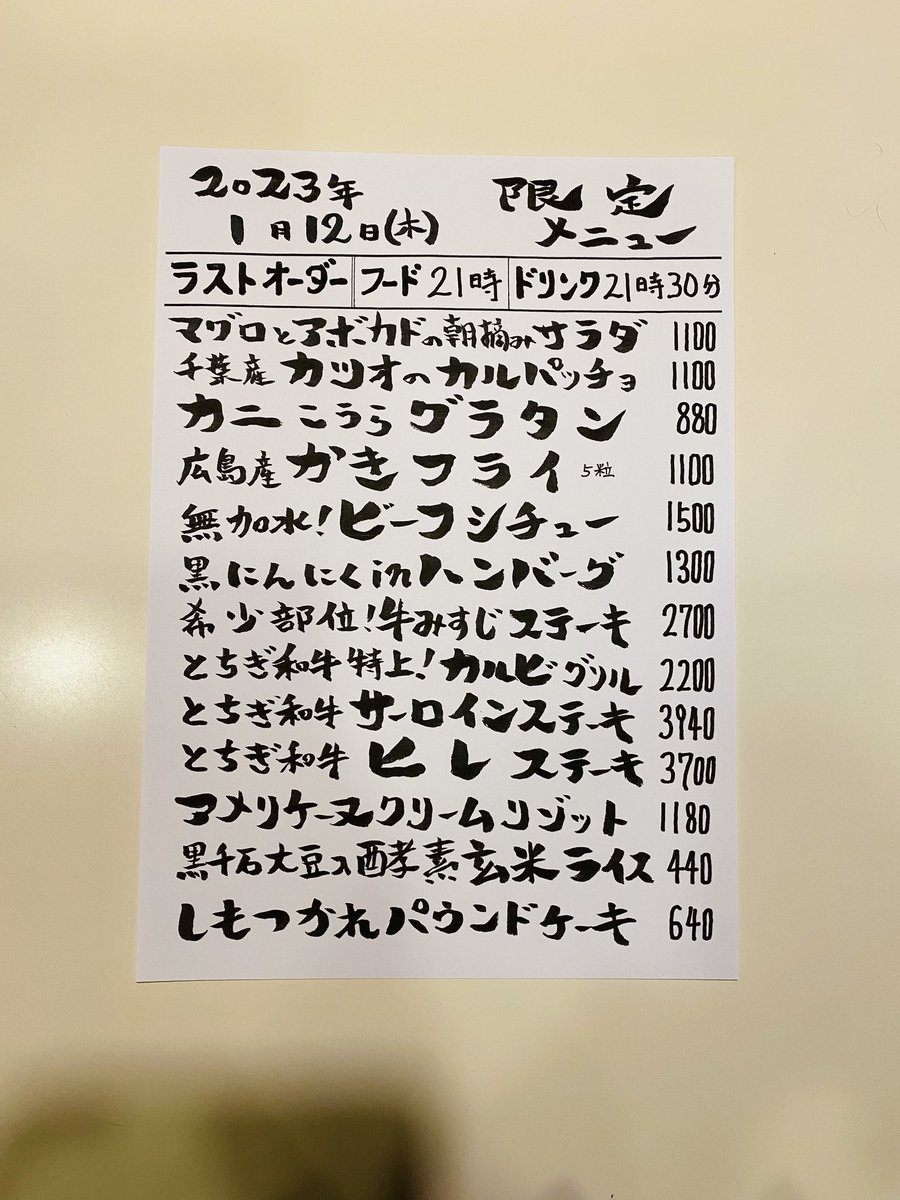 2023年
1月12日(木)
限定
メニュー
ラストオーダー フード21時 ドリンク21時30分
マグロとアボカドの朝摘みサラダ 1100
千葉産 カツオのカルパッチョ 1100
カニこうらグラタン 880
広島産 かきフライ 5粒 1100
無加水!ビーフシチュー 1500
黒にんにくinハンバーグ 1300
希少部位!牛みすじステーキ 2700
とちぎ和牛特上!カルビグリル 2200
とちぎ和牛サーロインステーキ 3940
とちぎ和牛ヒレステーキ 3700
アメリケーヌクリームリゾット 1180
黒千石大豆入酵素玄米ライス 440
しもつかれパウンドケーキ 640